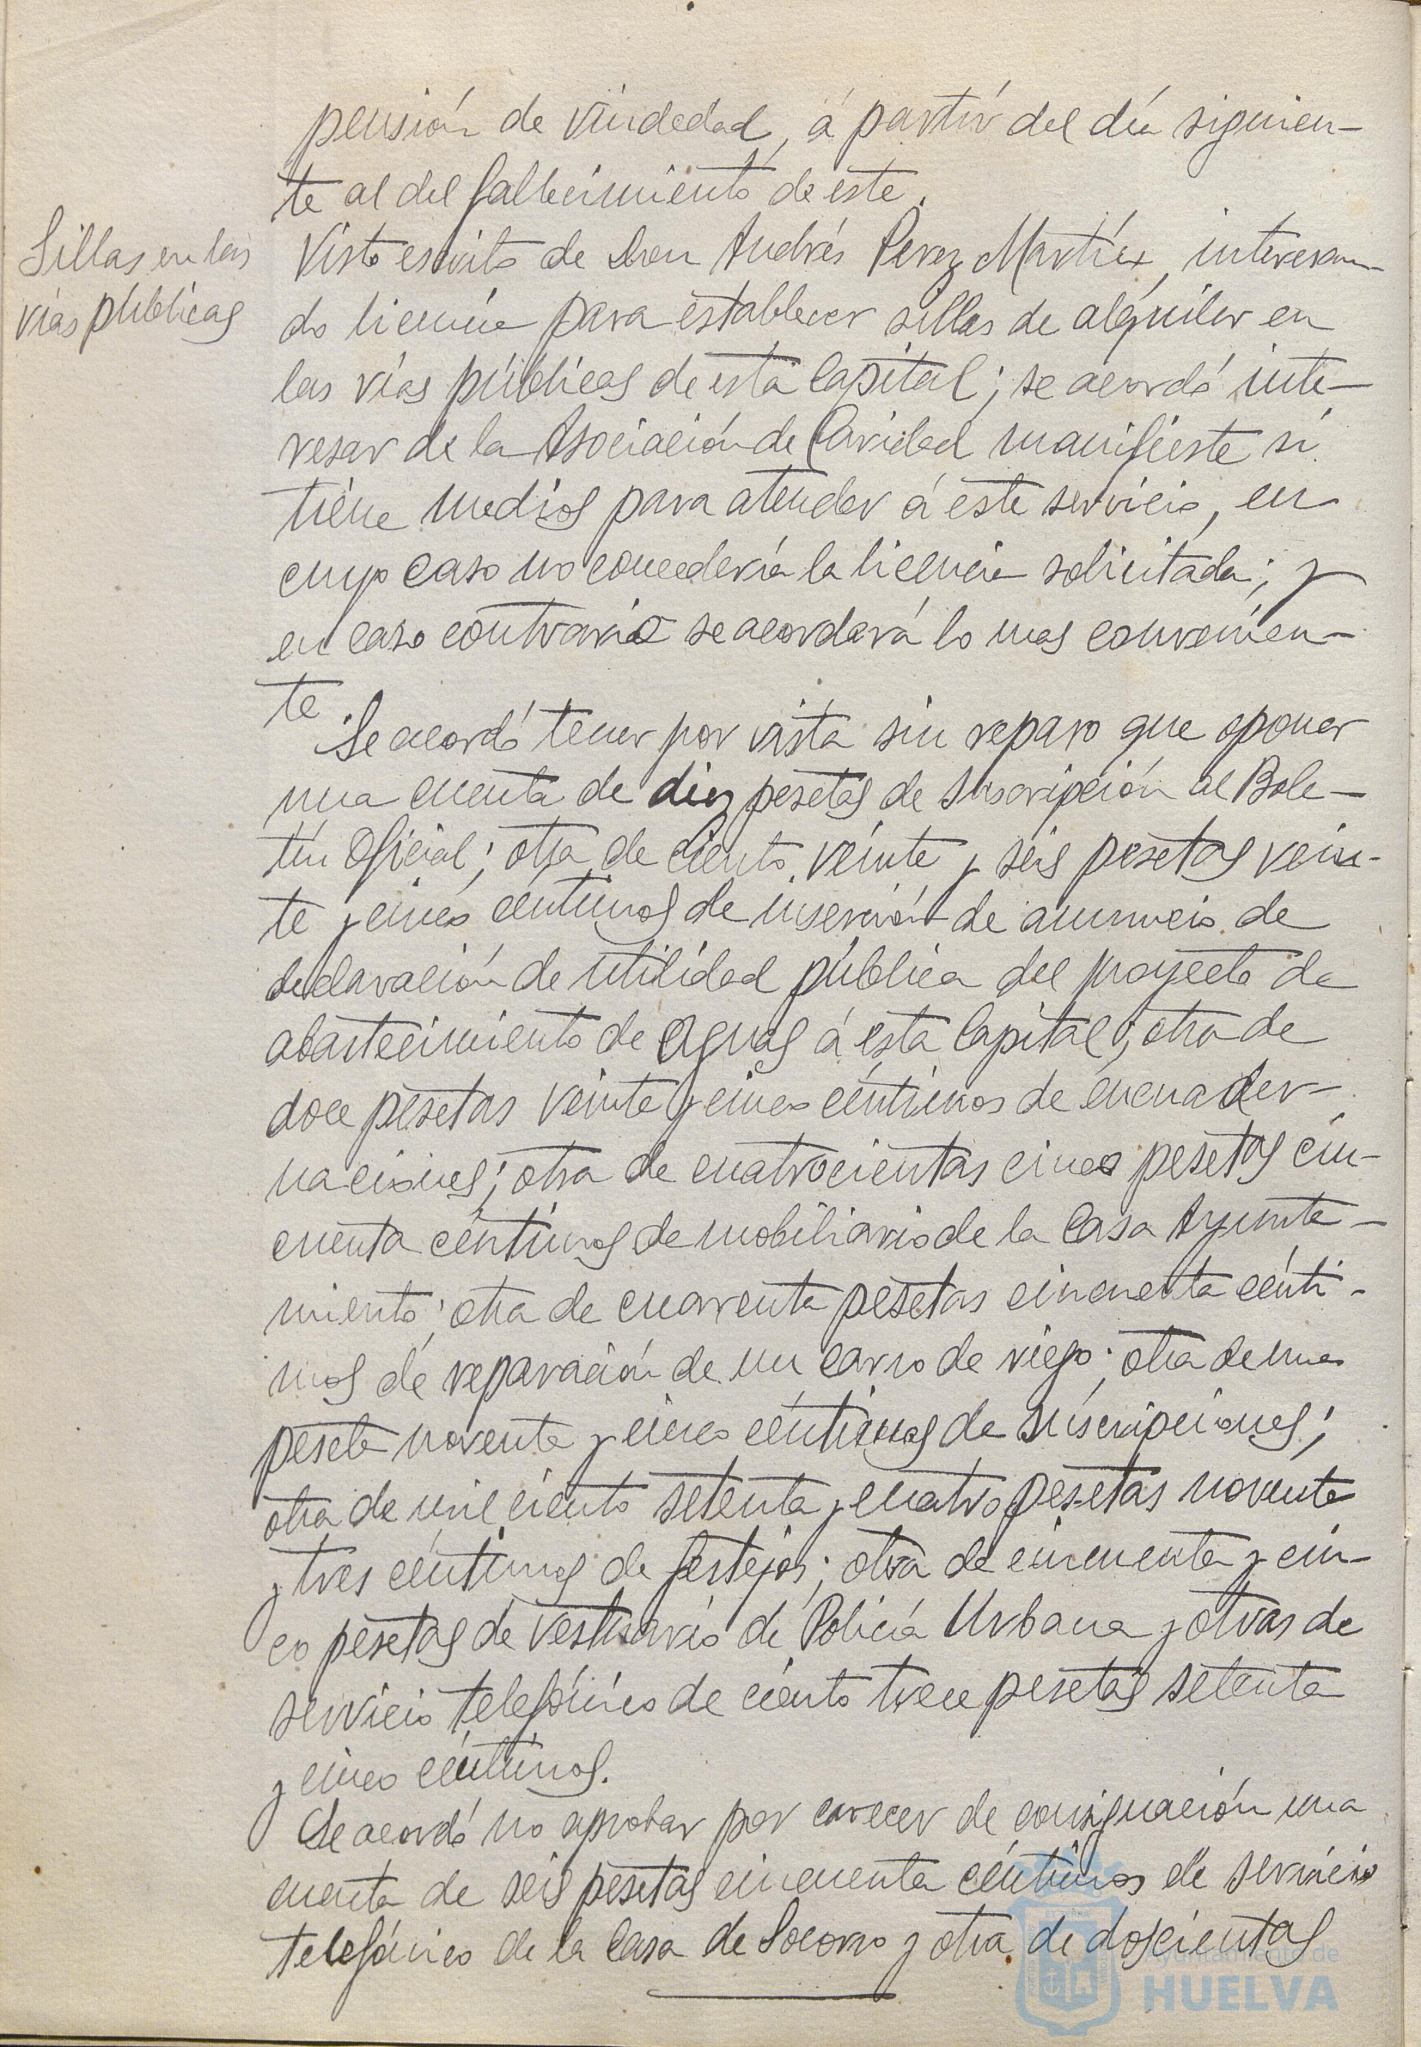 pensión de viudedad, á partir del día siguien-
te al del fallecimiento de este.
Sillas en las
vías públicas
Visto escrito de Don Andrés Perez Martín, interesan-
do licencia para establecer sillas de alquiler en
las vías públicas de esta Capital; se acordó inte-
resar de la Asociación de Caridad manifieste si
tiene medios para atender á este servicio, en
cuyo caso no concedería la licencia solicitada; y
en caso contrario se acordará lo mas convenien-
te
Se acordó tener por vista sin reparo que oponer
una cuenta de diez pesetas de suscripción al Bole-
tín Oficial; otra de ciento veinte y seis pesetas vein-
te y cinco céntimos de inserción de anuncio de
declaración de utilidad pública del proyecto de
abastecimiento de aguas á esta Capital; otra de
doce pesetas veinte y cinco céntimos de encuader-
naciones; otra de cuatrocientas cinco pesetas cin-
cuenta céntimos de mobiliario de la Casa Ayunta-
miento; otra de cuarenta pesetas cincuenta cénti-
mos de reparación de un carro de riego; otra de una
peseta noventa y cinco céntimos de suscripciones;
otra de mil ciento setenta y cuatro pesetas noventa
y tres céntimos de festejos; otra de cincuenta y cin-
co pesetas de vestuario de Policía Urbana y otras de
servicio telefónico de ciento trece pesetas setenta
y cinco céntimos.
Se acordó no aprobar por carecer de consignación una
cuenta de seis pesetas cincuenta céntimos de servicio
telefónico de la Casa de Socorro y otra de doscientas
Ayuntamiento de
HUELVA